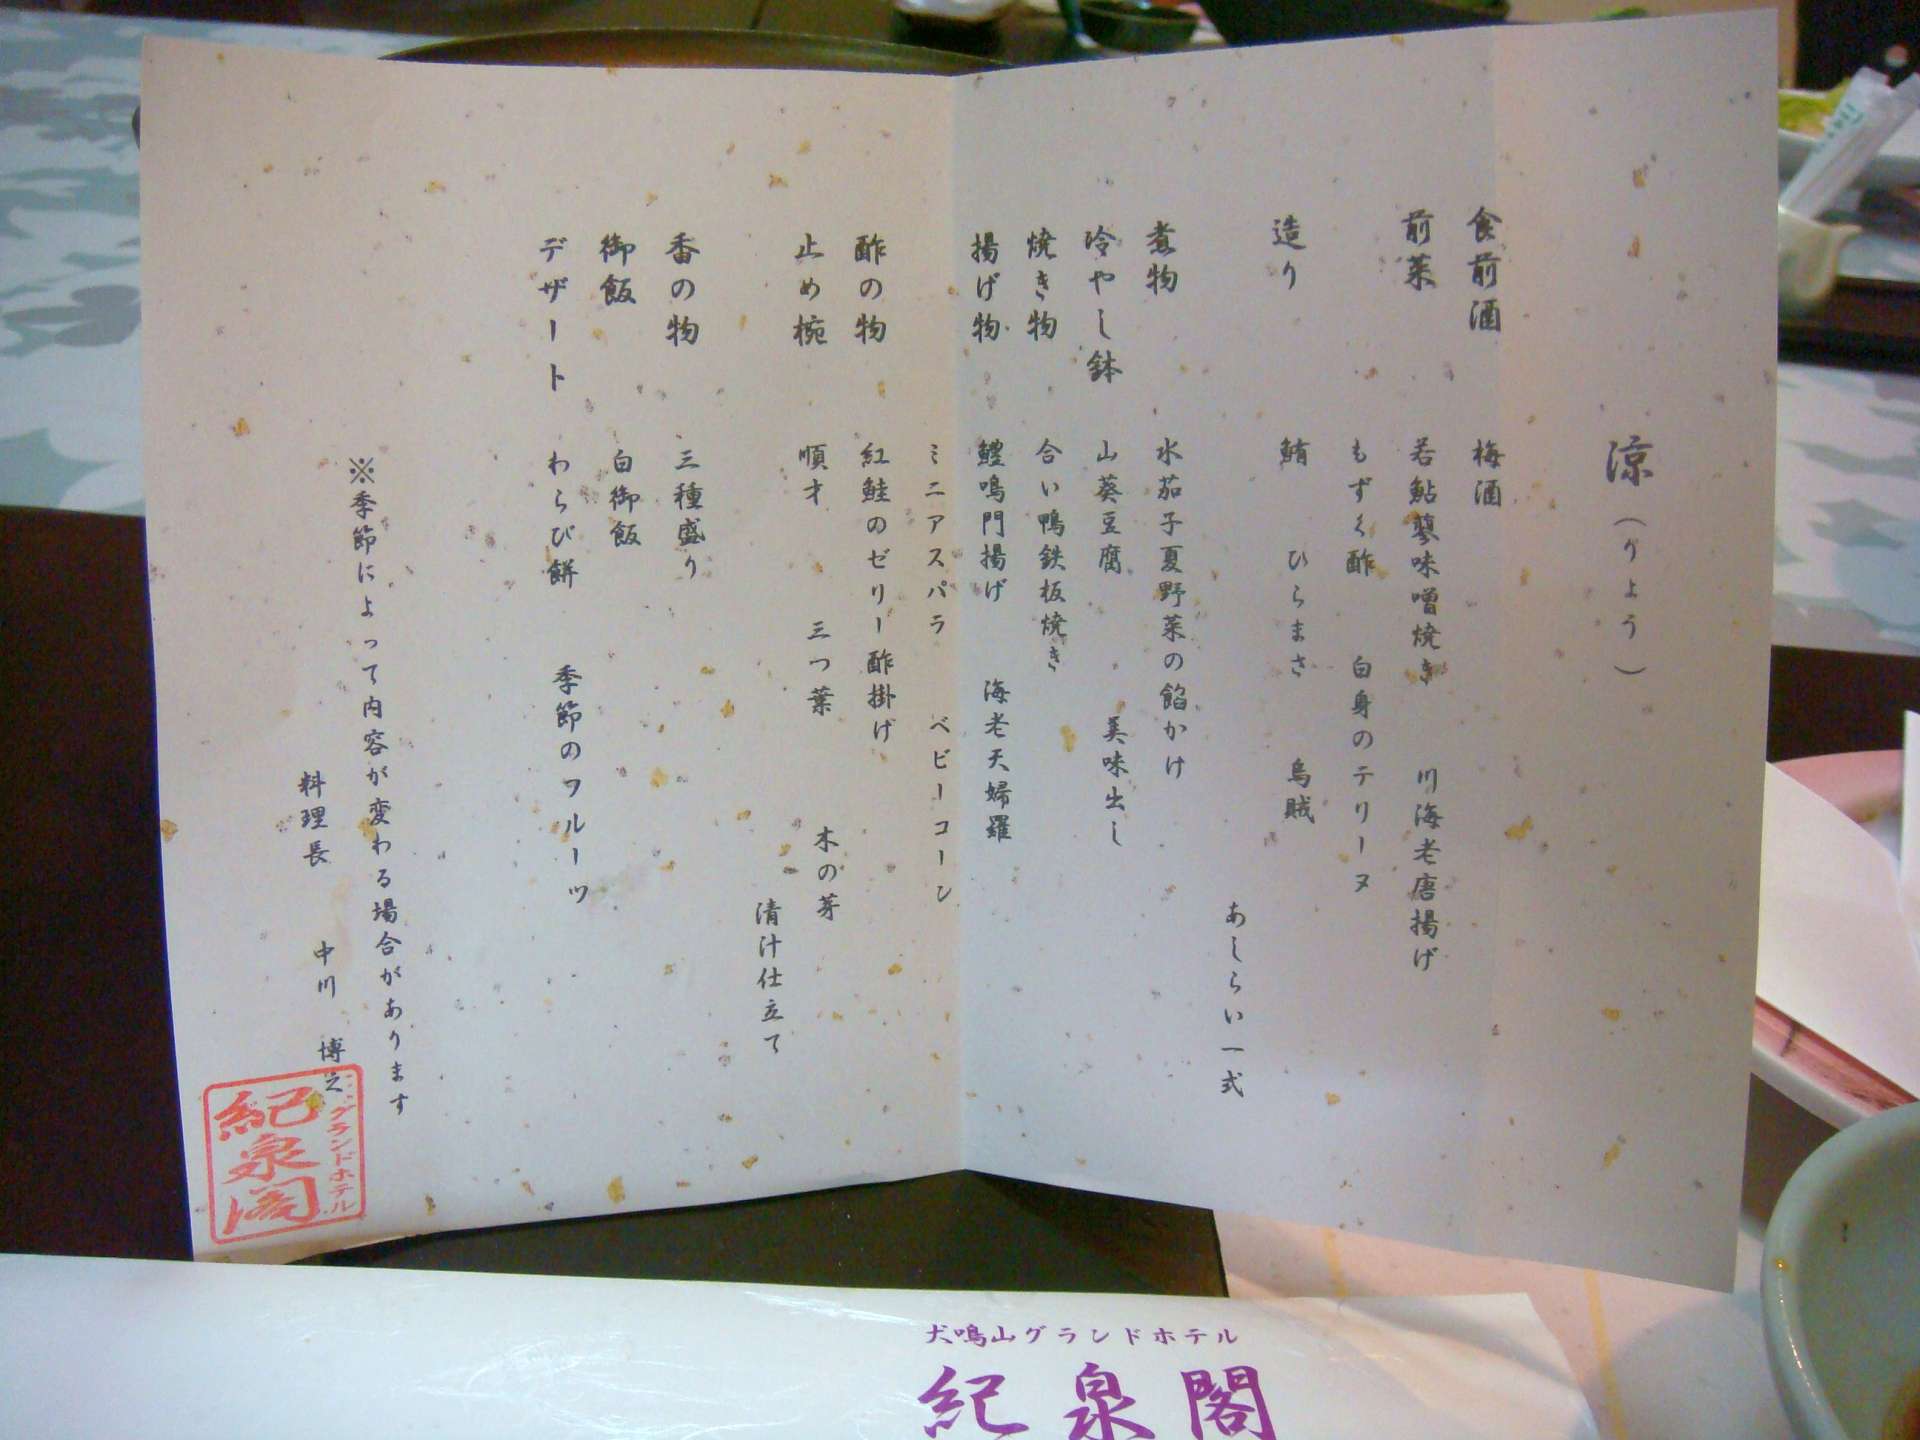 涼（りょう）
食前酒 梅酒
前菜 若鮎蓼味噌焼き 川海老唐揚げ
もずく酢 白身のテリーヌ
造り 鮪 ひらまさ 烏賊
あしらい一式
煮物 水茄子夏野菜の餡かけ
冷やし鉢 山葵豆腐 美味出し
焼き物 合い鴨鉄板焼き
揚げ物 鱧鳴門揚げ 海老天婦羅
ミニアスパラ ベビーコーン
酢の物 紅鮭のゼリー酢掛け
止め椀 順才 三つ葉 木の芽
清汁仕立て
香の物 三種盛り
御飯 白御飯
デザート わらび餅 季節のフルーツ
※季節によって内容が変わる場合があります
料理長 中川 博之
グランドホテル
紀泉閣
犬鳴山グランドホテル
紀泉閣